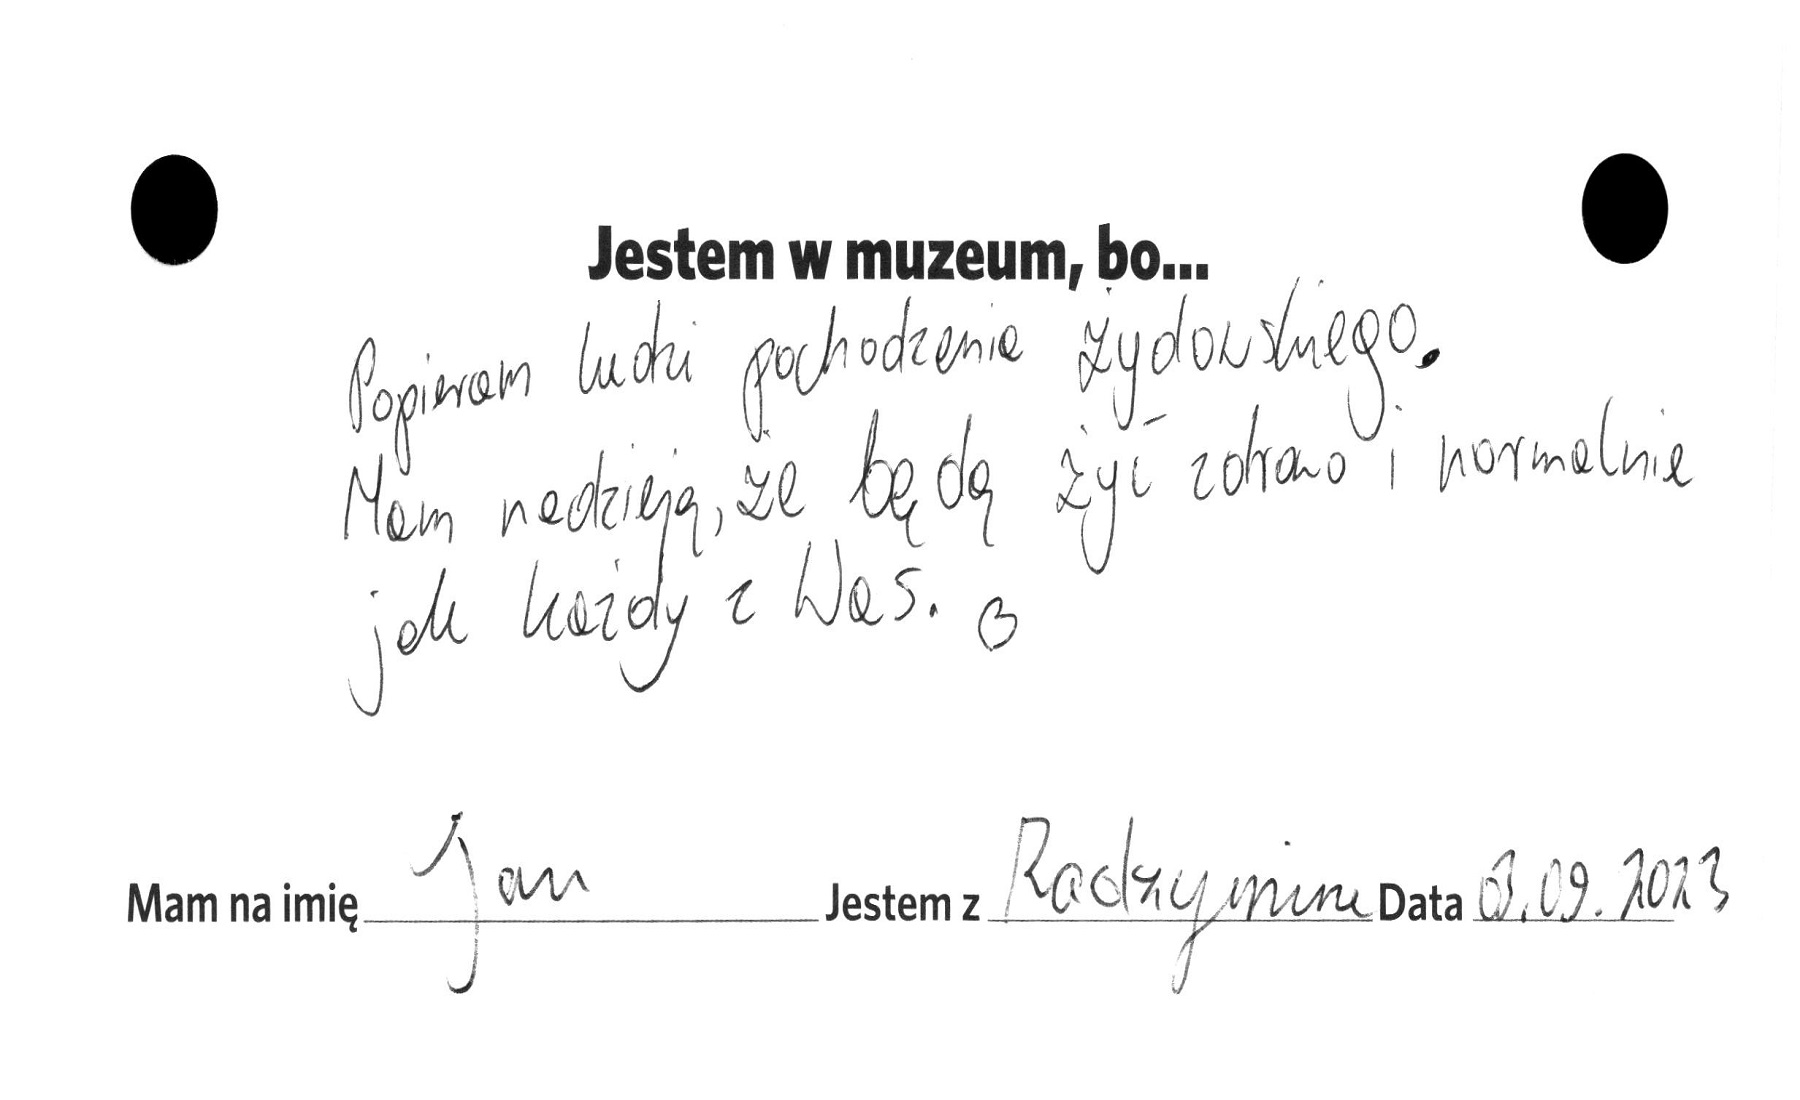 Jestem w muzeum, bo...
Popieram ludzi pochodzenia żydowskiego.
Mam nadzieją, że będą żyć zdrowo i normalnie
jak każdy z Was.
Mam na imię Jan Jestem z Radzymina Data 3.09.2023